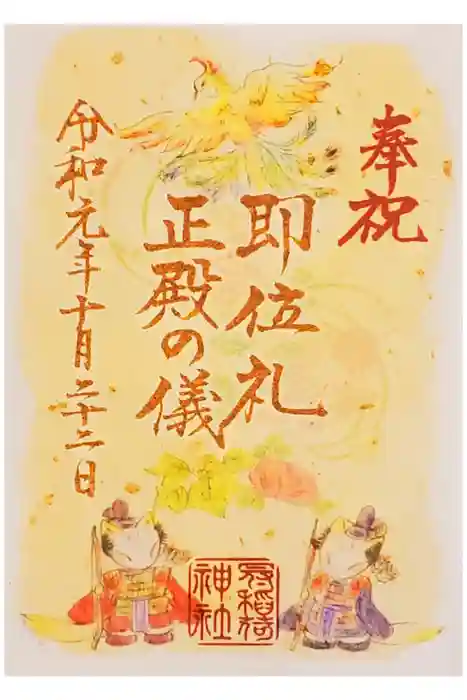 奉祝
即位礼
正殿の儀
令和元年十月二十二日
冠稲荷
神社